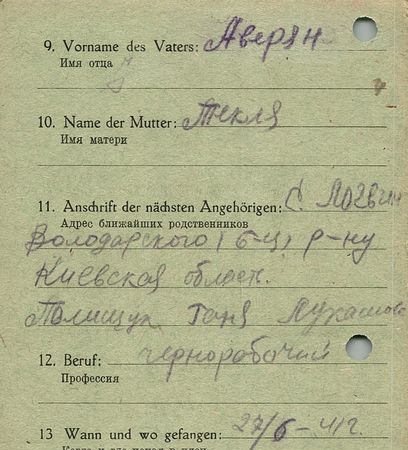 9. Vorname des Vaters: Аверян
Имя отца
10. Name der Mutter: Текля
Имя матери
11. Anschrift der nächsten Angehörigen: С. Логвин
Адрес ближайших родственников
Володарского (б-ц) р-ну
Киевская област.
Полищук Ганя Лукашова
12. Beruf: чернорабочий
Профессия
13 Wann und wo gefangen: 27/6-41г.